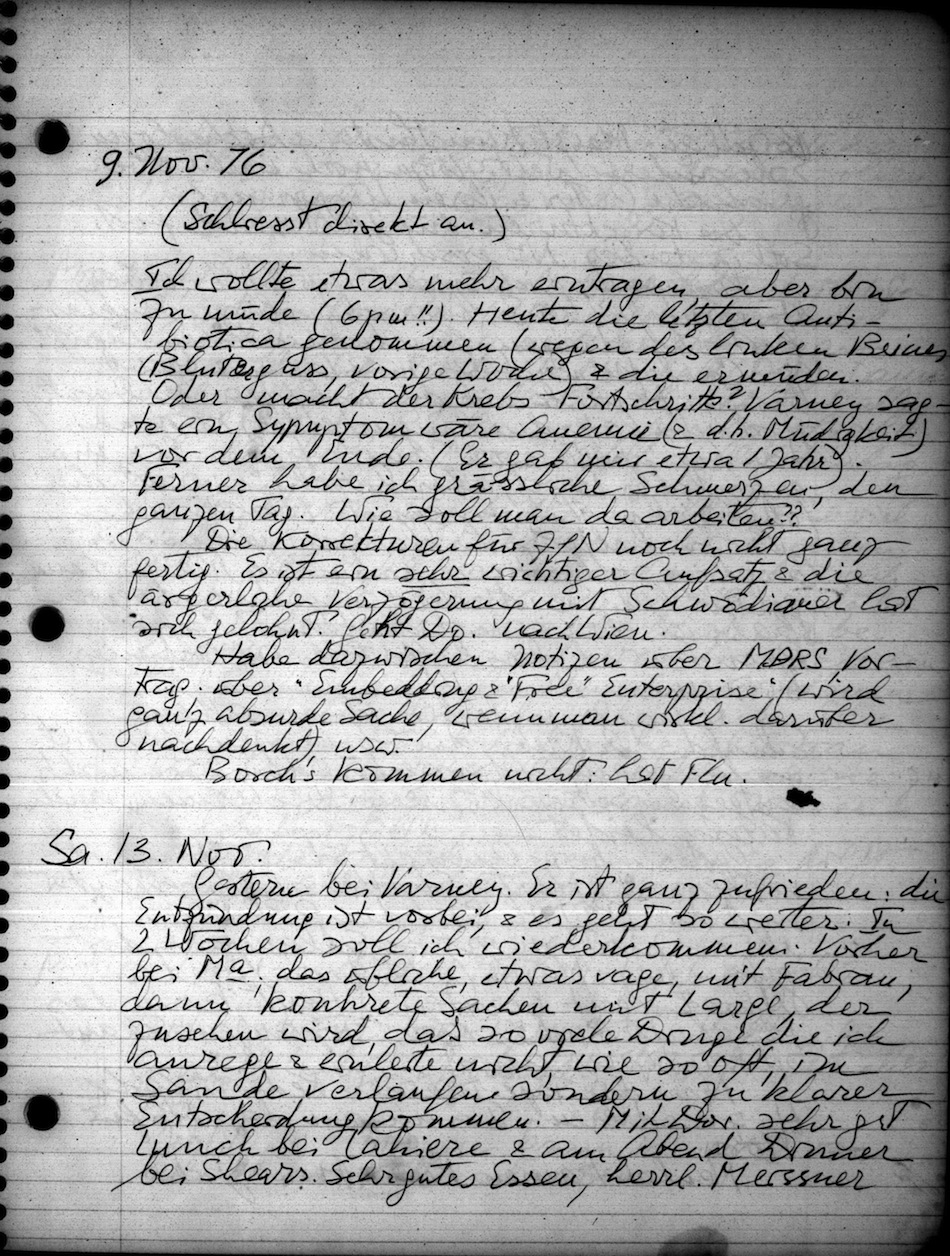 9. Nov. 76
(Schliesst direkt an.)
Ich wollte etwas mehr eintragen, aber bin
zu müde (6 pm!!). Heute die letzten Anti-
biotica genommen (wegen des linken Beines
(Bluterguss, vorige Woche) & die ermüden.
Oder macht der Krebs Fortschritte? Varney sag-
te ein Symptom wäre Anemie (& d.h. Müdigkeit)
vor dem Ende. (Er gab mir etwa 1 Jahr).
Ferner habe ich grässliche Schmerzen, den
ganzen Tag. Wie soll man da arbeiten??
Die Korrekturen für noch nicht ganz
fertig. Es ist ein sehr wichtiger Aufsatz & die
ärgerliche Verzögerung mit hat
sich gelohnt. Geht Do. nach Wien.
Habe dazwischen Notizen über MDRS Vor-
trag. über "Embedding & "Free" Enterprise" (wird
ganz absurde Sache, wenn man wirkl. darüber
nachdenkt) usw.
kommen nicht: hat Flu.
Sa. 13. Nov.
Gestern bei Varney. Er ist ganz zufrieden: die
Entzündung ist vorbei, & es geht so weiter. In
2 Wochen soll ich wiederkommen. Vorher
bei Ma, das übliche, etwas vage, mit Fabian,
dann konkrete Sachen mit Large, der
zusehen wird, das so viele Dinge die ich
anrege & einleite nicht, wie so oft, im
Sande verlaufen sondern zu klarer
Entscheidung kommen. – Mit Dor. sehr gut
Lunch bei & am Abend Dinner
bei Shears. Sehr gutes Essen, herrl. Meissner